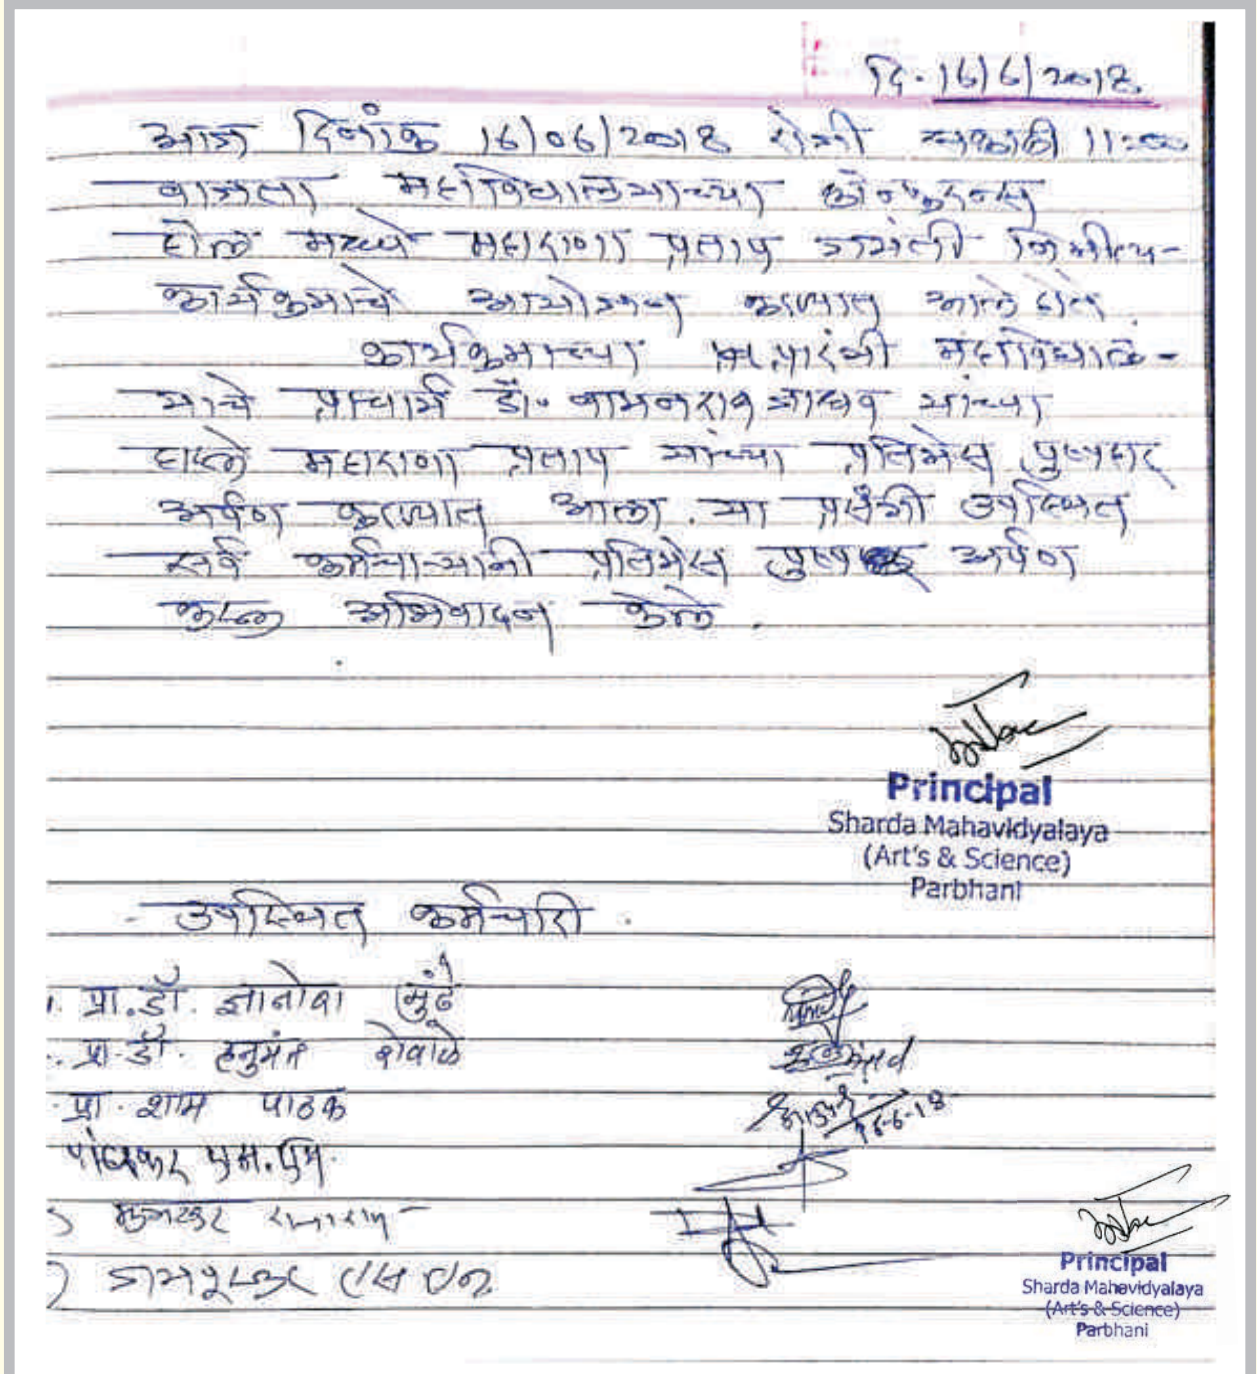 दि. 16/6/2018
आज दिनांक 16/06/2018 रोजी सकाळी 11:00
वाजता महाविद्यालयाच्या कॉन्फरन्स
हॉल मध्ये महाराणा प्रताप जयंती निमीत्य-
कार्यक्रमाचे आयोजन करण्यात आले होते.
कार्यक्रमाच्या प्रारंभी महाविद्याल-
याचे प्राचार्य डॉ. वामनराव जाधव यांच्या
हास्ते महाराणा प्रताप यांच्या प्रतिमेस पुष्पहार
अर्पण करण्यात आला. या प्रसंगी उपस्थित
सर्व कर्मचाऱ्यांनी प्रतिमेस पुष्प अर्पण
करून अभिवादन केले.
Principal
Sharda Mahavidyalaya
(Art's & Science)
Parbhani
- उपस्थित कर्मचारी.
1. प्रा.डॉ. ज्ञानोबा मुंढे
प्रा.डॉ. हनुमंत शेवाळे
प्रा. शाम पाठक
16-6-18
एस.एम.
Principal
Sharda Mahavidyalaya
(Art's & Science)
Parbhani